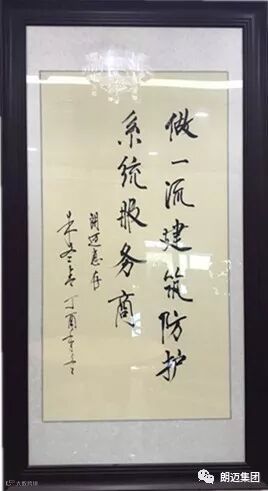 做一流建筑防护
系统服务商
朗迈惠存
丁酉
朗迈集团